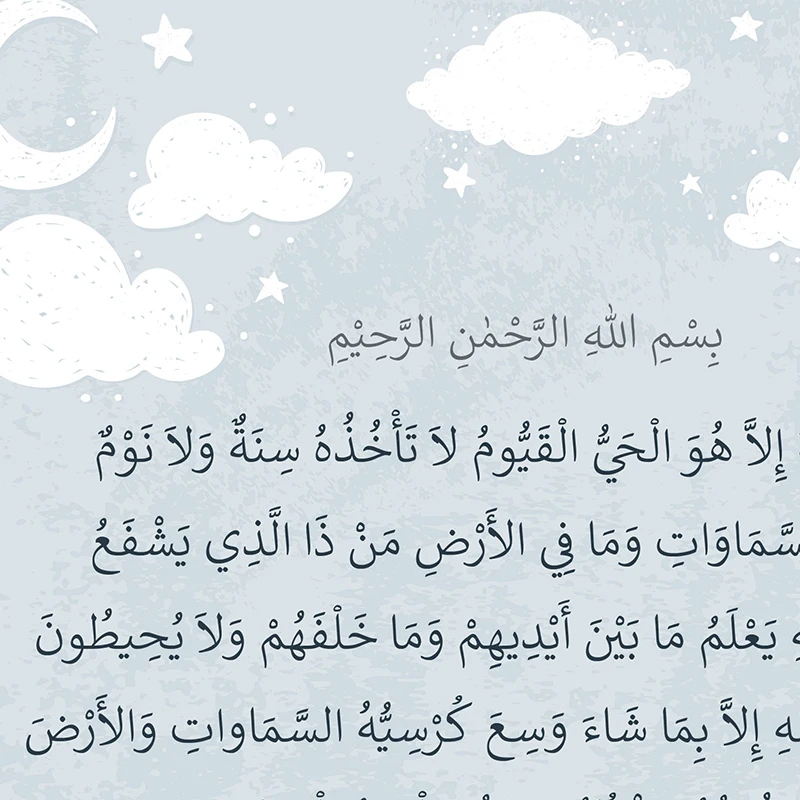 بِسْمِ اللهِ الرَّحْمٰنِ الرَّحِيْمِ
إِلاَّ هُوَ الْحَيُّ الْقَيُّومُ لاَ تَأْخُذُهُ سِنَةٌ وَلاَ نَوْمٌ
سَّمَاوَاتِ وَمَا فِي الأَرْضِ مَنْ ذَا الَّذِي يَشْفَعُ
يَعْلَمُ مَا بَيْنَ أَيْدِيهِمْ وَمَا خَلْفَهُمْ وَلاَ يُحِيطُونَ
إِلاَّ بِمَا شَاءَ وَسِعَ كُرْسِيُّهُ السَّمَاواتِ وَالأَرْضَ